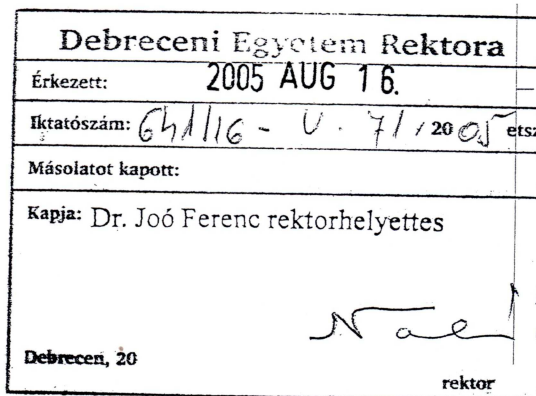 Debreceni Egyetem Rektora
Érkezett: 2005 AUG 16.
Iktatószám: 641/16 - V. 71 / 2005 etsz
Másolatot kapott:
Kapja: Dr. Joó Ferenc rektorhelyettes
Debrecen, 20
rektor